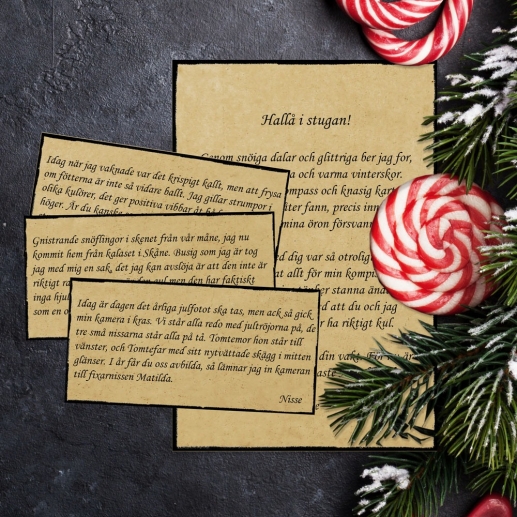 Hallå i stugan!
Genom snöiga dalar och glittriga ber jag for,
och varma vinterskor.
kompass och knasig kart
fann, precis inn
mina öron försvann
d dig var så otrolig
allt för min komp
der stanna ända
rd att du och jag
ha riktigt kul.
din vakt. För
Idag när jag vaknade var det krispigt kallt, men att frysa
om fötterna är inte så vidare ballt. Jag gillar strumpor i
olika kulörer, det ger positiva vibbar åt
höger. Är du kanske
Gnistrande snöflingor i skenet från vår måne, jag nu
kommit hem från kalaset i Skåne. Busig som jag är tog
jag med mig en sak, det jag kan avslöja är att den inte är
riktigt men den har faktiskt
inga hjul
som en o
Idag är dagen det årliga julfotot ska tas, men ack så gick
min kamera i kras. Vi står alla redo med jultröjorna på, de
tre små nissarna står alla på tå. Tomtemor hon står till
vänster, och Tomtefar med sitt nytvättade skägg i mitten
glänser. I år får du oss avbilda, så lämnar jag in kameran
till fixarnissen Matilda.
Nisse